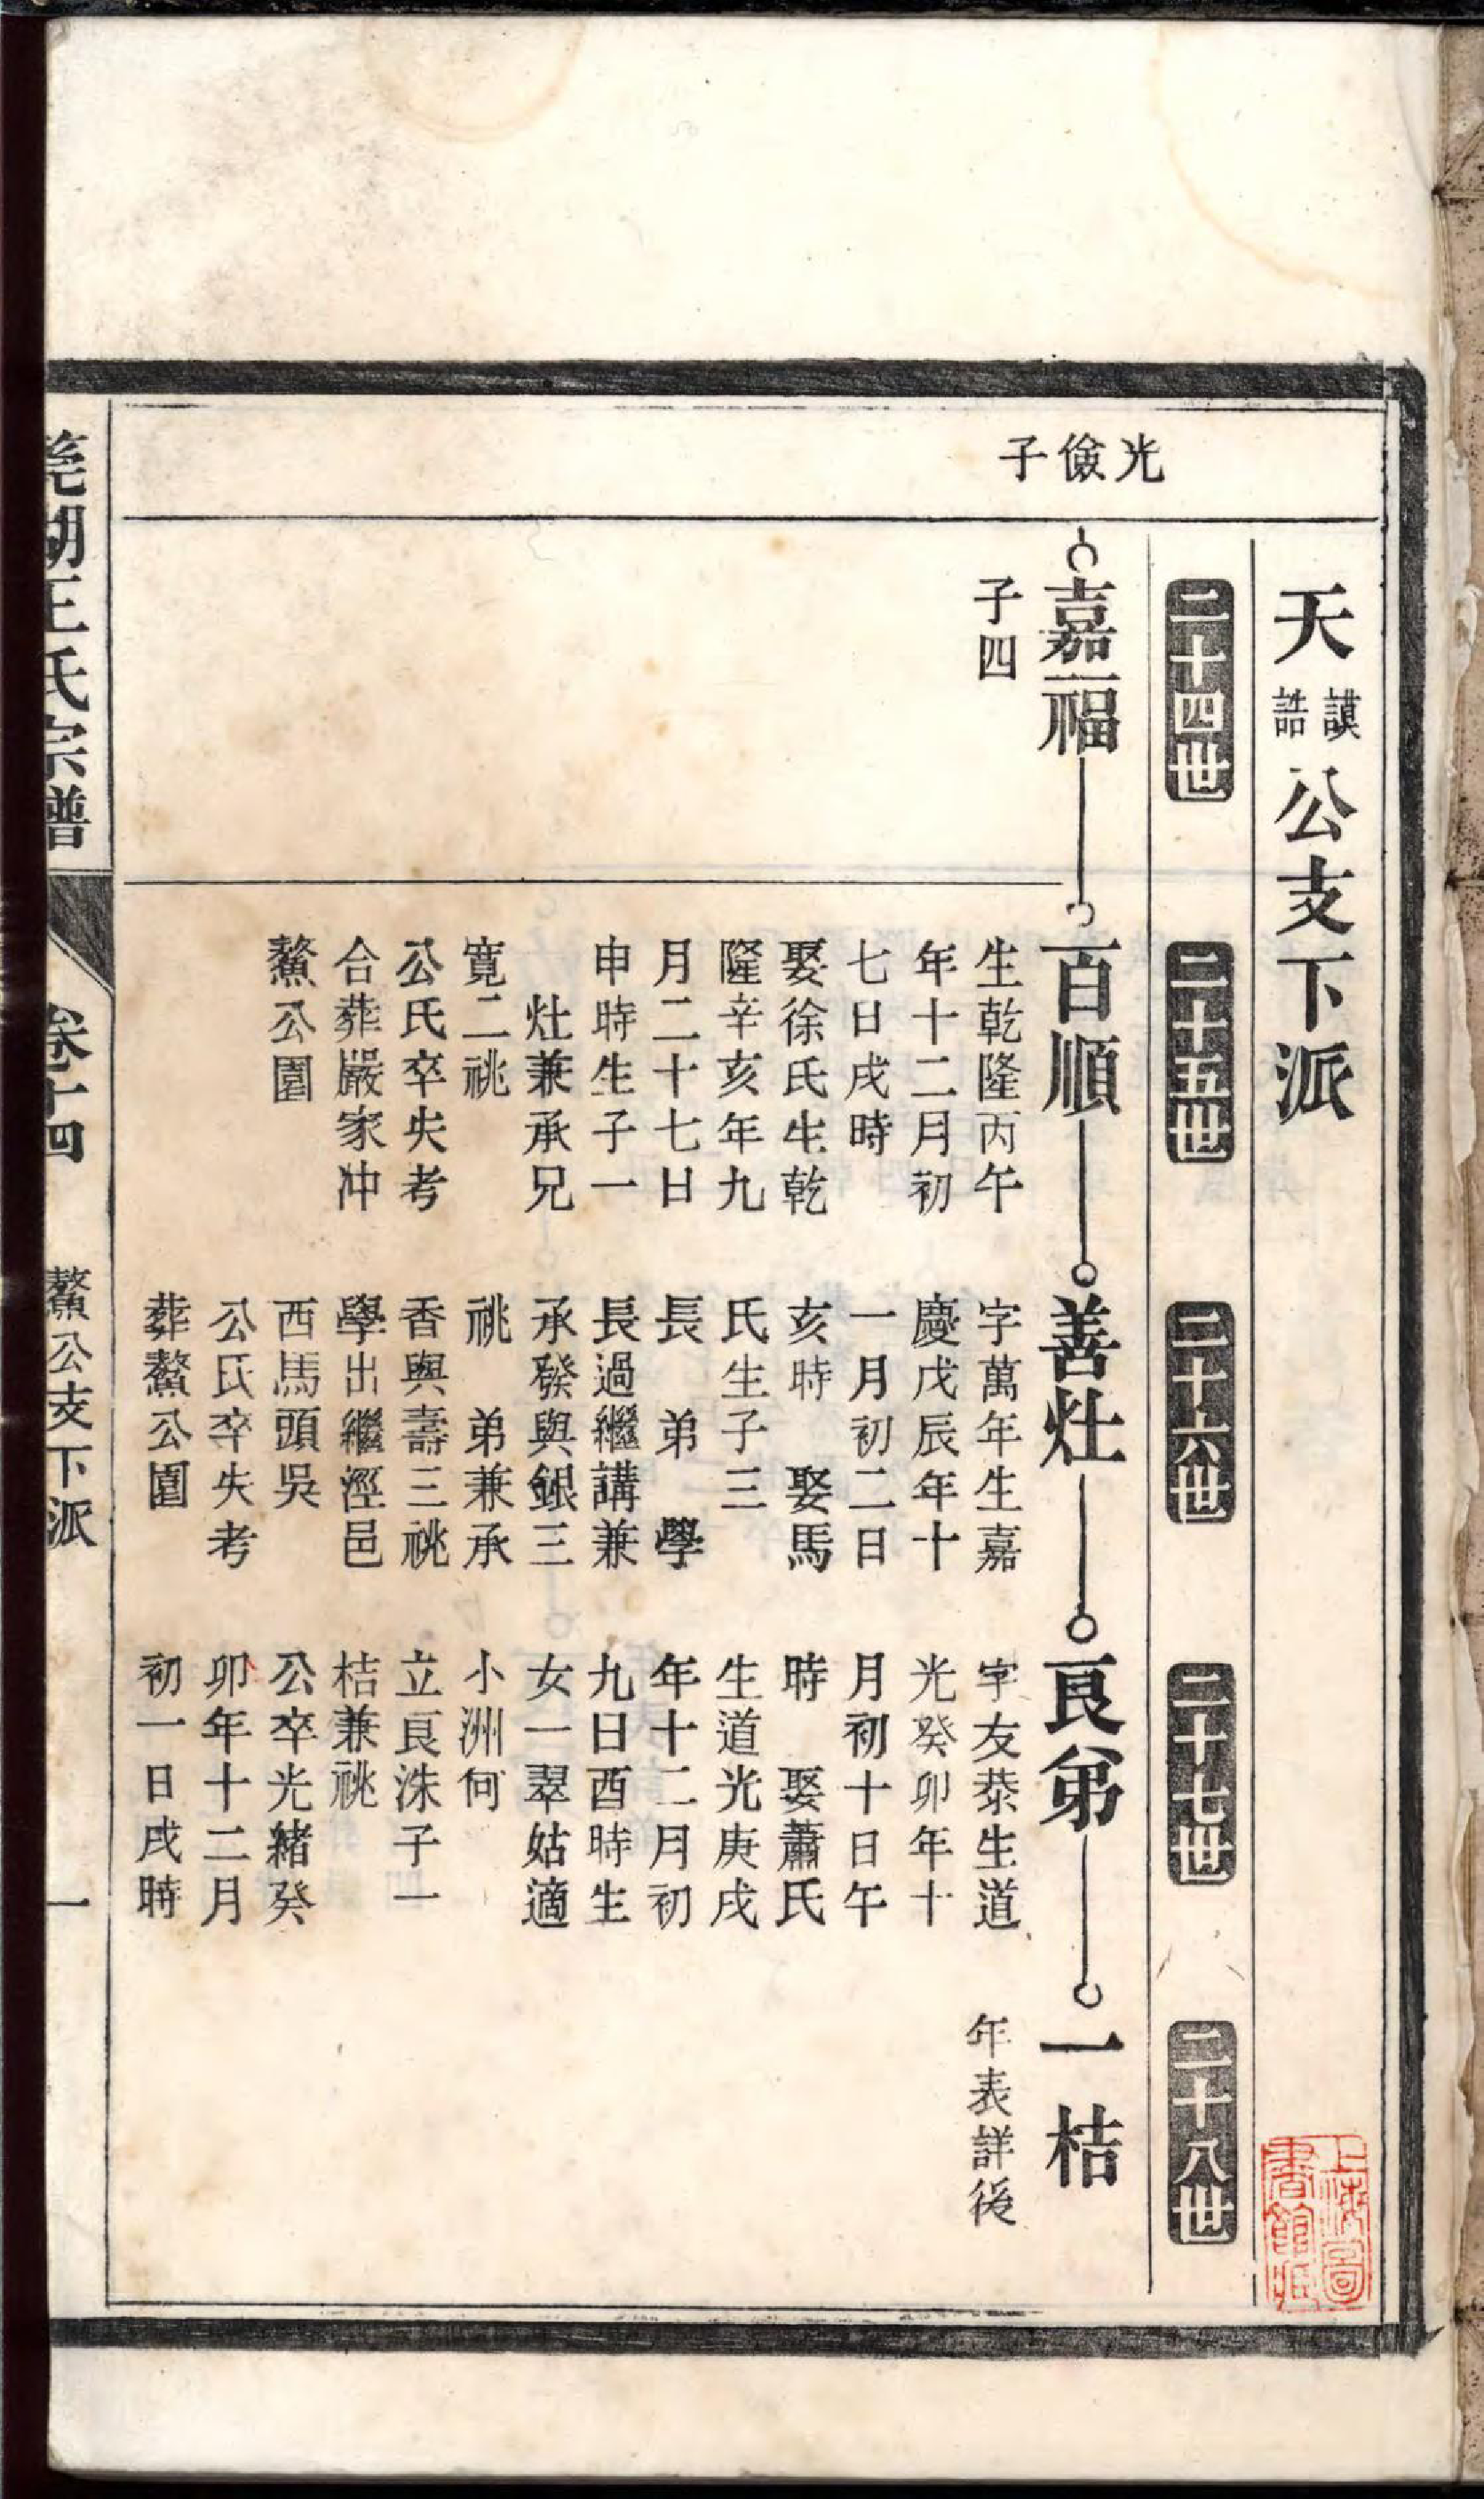 天謨誥公支下派
二十四世
二十五世
二十六世
二十七世
二十八世
光儉子
嘉福
子四
百順
生乾隆丙午
年十二月初
七日戌時
娶徐氏生乾
隆辛亥年九
月二十七日
申時生子一
灶兼承兄
寬二祧
公氏卒失考
合葬嚴家冲
鰲公園
善灶
字萬年生嘉
慶戊辰年十
一月初二日
亥時 娶馬
氏生子三
長 弟 學
長過繼講兼
承發與銀三
祧 弟兼承
香與壽三祧
學出繼涇邑
西馬頭吳
公氏卒失考
葬鰲公園
良弟
字友恭生道
光癸卯年十
月初十日午
時 娶蕭氏
生道光庚戌
年十二月初
九日酉時生
女一翠姑適
小洲何
立良洙子一
桔兼祧
公卒光緒癸
卯年十二月
初一日戌時
一桔
年表詳後
上海圖
書館藏
湖王氏宗譜
卷十四
鰲公支下派
一